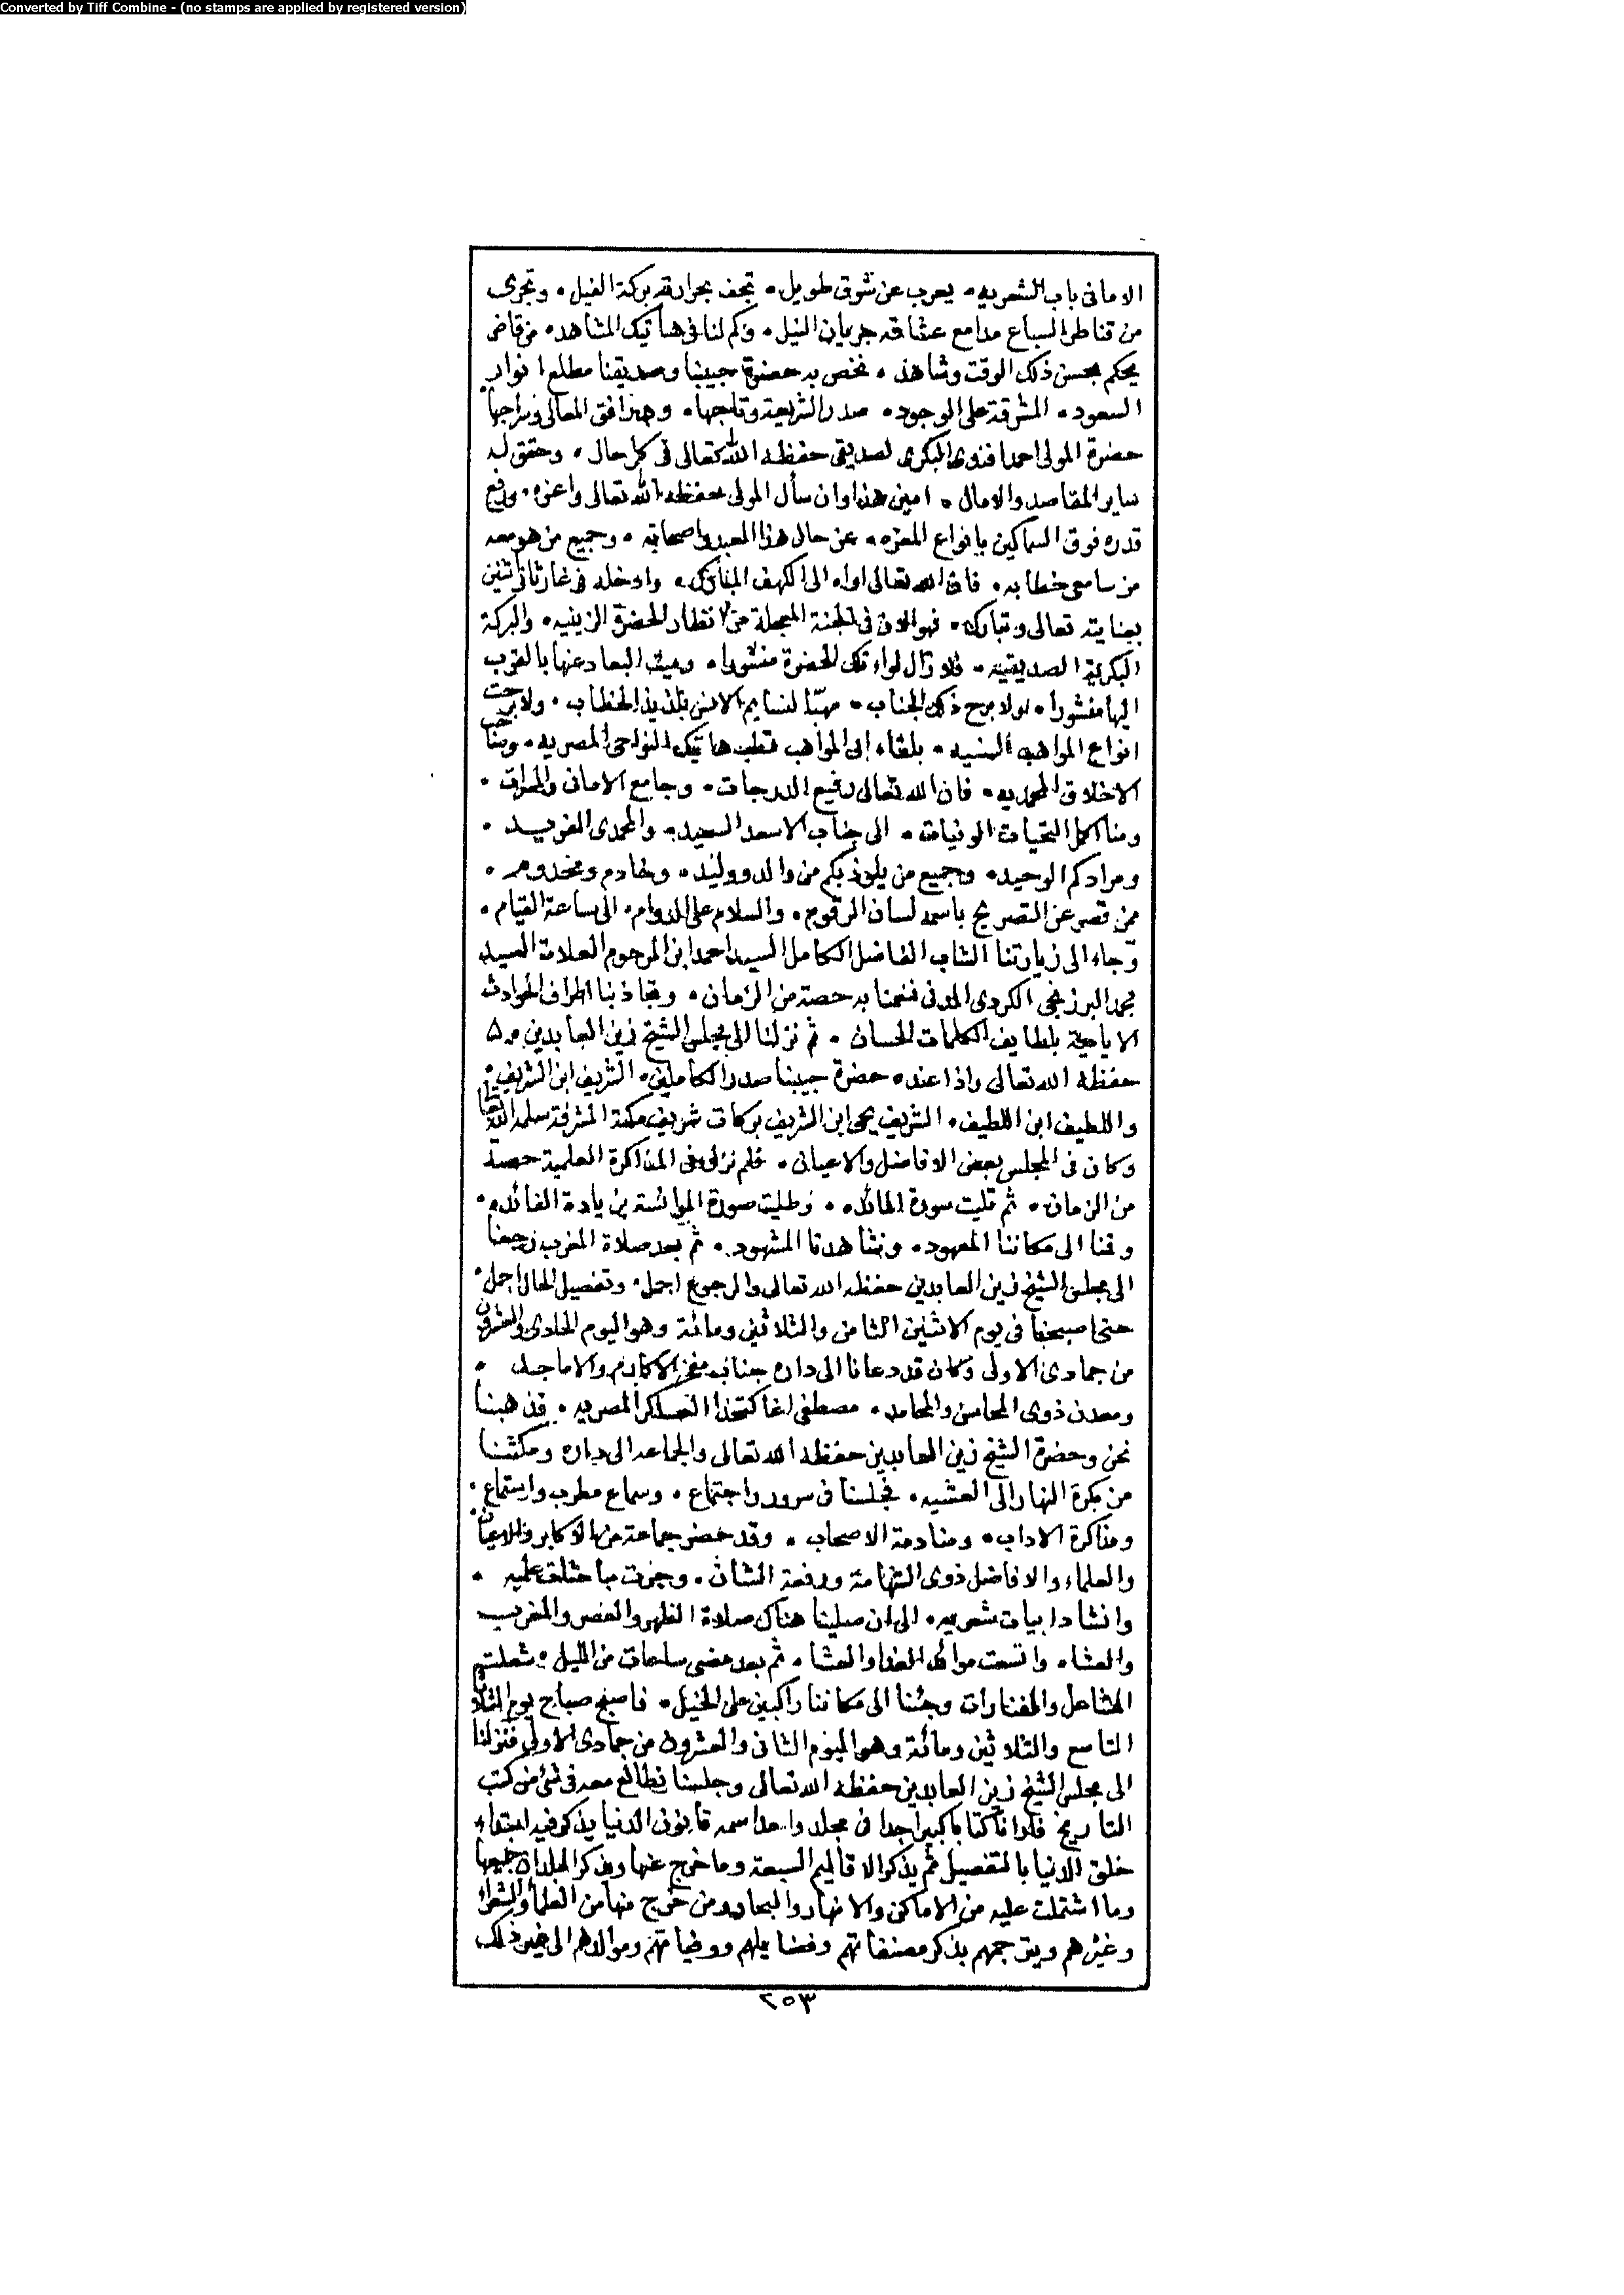 Converted by Tiff Combine - (no stamps are applied by registered version)
الامانى باب الشعريه . يعرب عن شوق طويل . تجف بحرارته بركة الفيل . وتجرى
من قناطر السباع مدامع عشاقه جريان النيل . وكم لنا فى هاتيك المشاهد . من قاض
يحكم بحسن ذلك الوقت وشاهد . نخص به حضرة حبيبنا وصديقنا مطلع انوار
السعود . المشرقة على الوجود . صدر الشريعة وتاجها . وهذا افق المعالى وسراجها
حضرة المولى احمد افندى البكرى الصديقى حفظه الله تعالى فى كل حال . وحقق له
ساير المقاصد والامال . امين هذا وان سأل المولى حفظه الله تعالى واعزه . ورفع
قدره فوق السماكين بانواع المعزه . عن حال هذا العبد واصحابه . وجميع من هو معه
من سامعى خطابه . فان الله تعالى اواه الى الكهف المبارك . وادخله فى غار ثانى اثنين
بعنايته تعالى وتبارك . فهو الان فى الجنة المعجلة من انظار الحضرة الزينيه . والبركة
البكرية الصديقيه . فلا زال لواء تلك الحضرة منشورا . وميت البعاد عنها بالقرب
اليها منشورا . ولا برح ذلك الجناب . مهبا لنسايم الانس بلذيذ الخطاب . ولا برحت
انواع المواهب السنيه . بلقاء ابى المواهب قطب هاتيك النواحى المصريه . وصاحب
الاخلاق المحمديه . فان الله تعالى رفيع الدرجات . وجامع الامانى والمرات .
ومنا اكمل التحيات الوفيات . الى جناب الاسعد السعيد . والمحمدى الفريد .
ومرادكم الوحيد . وجميع من يلوذ بكم من والد ووليد . وخادم ومخدوم .
ممن قصر عن التصريح باسمه لسان المرقوم . والسلام على الدوام . الى ساعة القيام .
وجاء الى زيارتنا الشاب الفاضل الكامل السيد احمد ابن المرحوم العلامة السيد
محمد البرزنجى الكردى المدنى فنعمنا به حصة من الزمان . وتجاذبنا اطراف الحوادث
الايامية بلطايف الكلمات الحسان . ثم نزلنا الى مجلس الشيخ زين العابدين
حفظه الله تعالى واذا عنده حضرة حبيبنا صدر الكاملين . الشريف ابن الشريف .
واللطيف ابن اللطيف . الشريف يحيى ابن الشريف بركات شريف مكة المشرفة سلمه الله تعالى
وكان فى المجلس بعض الافاضل والاعيان . فلم نزل فى المذاكرة العلمية حصة
من الزمان . ثم تليت سورة المائده . وطليت صورة الموائسة بزيادة الفائده .
وقمنا الى مكاننا المعهود . ونشاهدنا المشهود . ثم بعد صلاة المغرب رجعنا
الى مجلس الشيخ زين العابدين حفظه الله تعالى والرجوع اجمل . وتفصيل الحال اجمل .
حتى اصبحنا فى يوم الاثنين الثامن والثلاثين ومائة وهو اليوم الحادى والعشرون
من جمادى الاولى وكان قد دعانا الى داره جناب مفخر الاكابر والاماجد .
ومعدن ذوى المحاسن والمحامد . مصطفى اغا كتخدا العساكر المصريه . فذهبنا
نحن وحضرة الشيخ زين العابدين حفظه الله تعالى والجماعه الى داره ومكثنا
من بكرة النهار الى العشيه . فجلسنا فى سرور واجتماع . وسماع مطرب واستماع .
ومذاكرة الاداب . ومنادمة الاصحاب . وقد حضر جماعة من الاكابر والاعيان .
والعلماء والافاضل ذوى الشهامة ورفعة الشان . وجرت مباحث علميه .
وانشاد ابيات شعريه . الى ان صلينا هناك صلاة الظهر والعصر والمغرب
والعشاء . واتسعت موائد الغدا والعشا . ثم بعد مضى ساعات من الليل . شعلت
المشاعل والفنارات وجئنا الى مكاننا راكبين على الخيل . فاصبح صباح يوم الثلاثا
التاسع والثلاثين ومائة وهو اليوم الثانى والعشرون من جمادى الاولى فنزلنا
الى مجلس الشيخ زين العابدين حفظه الله تعالى وجلسنا نطالع معه فى شئ من كتب
التاريخ فارانا كتابا كبيرا جدا فى مجلد واحد اسمه قانون الدنيا يذكر فيه ابتداء
خلق الدنيا بالتفصيل ثم يذكر الاقاليم السبعة وما خرج عنها ويذكر البلدان جميعها
وما اشتملت عليه من الاماكن والانهار والبحار ومن خرج منها من العلماء والشعراء
وغيرهم ويترجمهم بذكر مصنفاتهم وفضايلهم ووفياتهم وموالدهم الى غير ذلك
٢٥٣